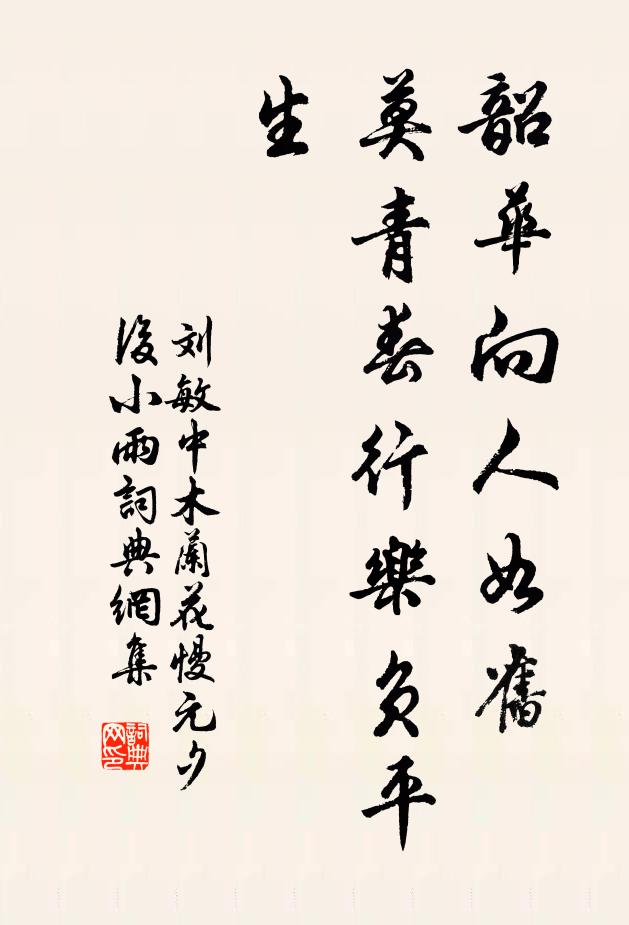 韶華向人如舊
莫青春行樂負平
生
刘敏中木蘭花慢元夕
後小雨詞典網集
詞典网印